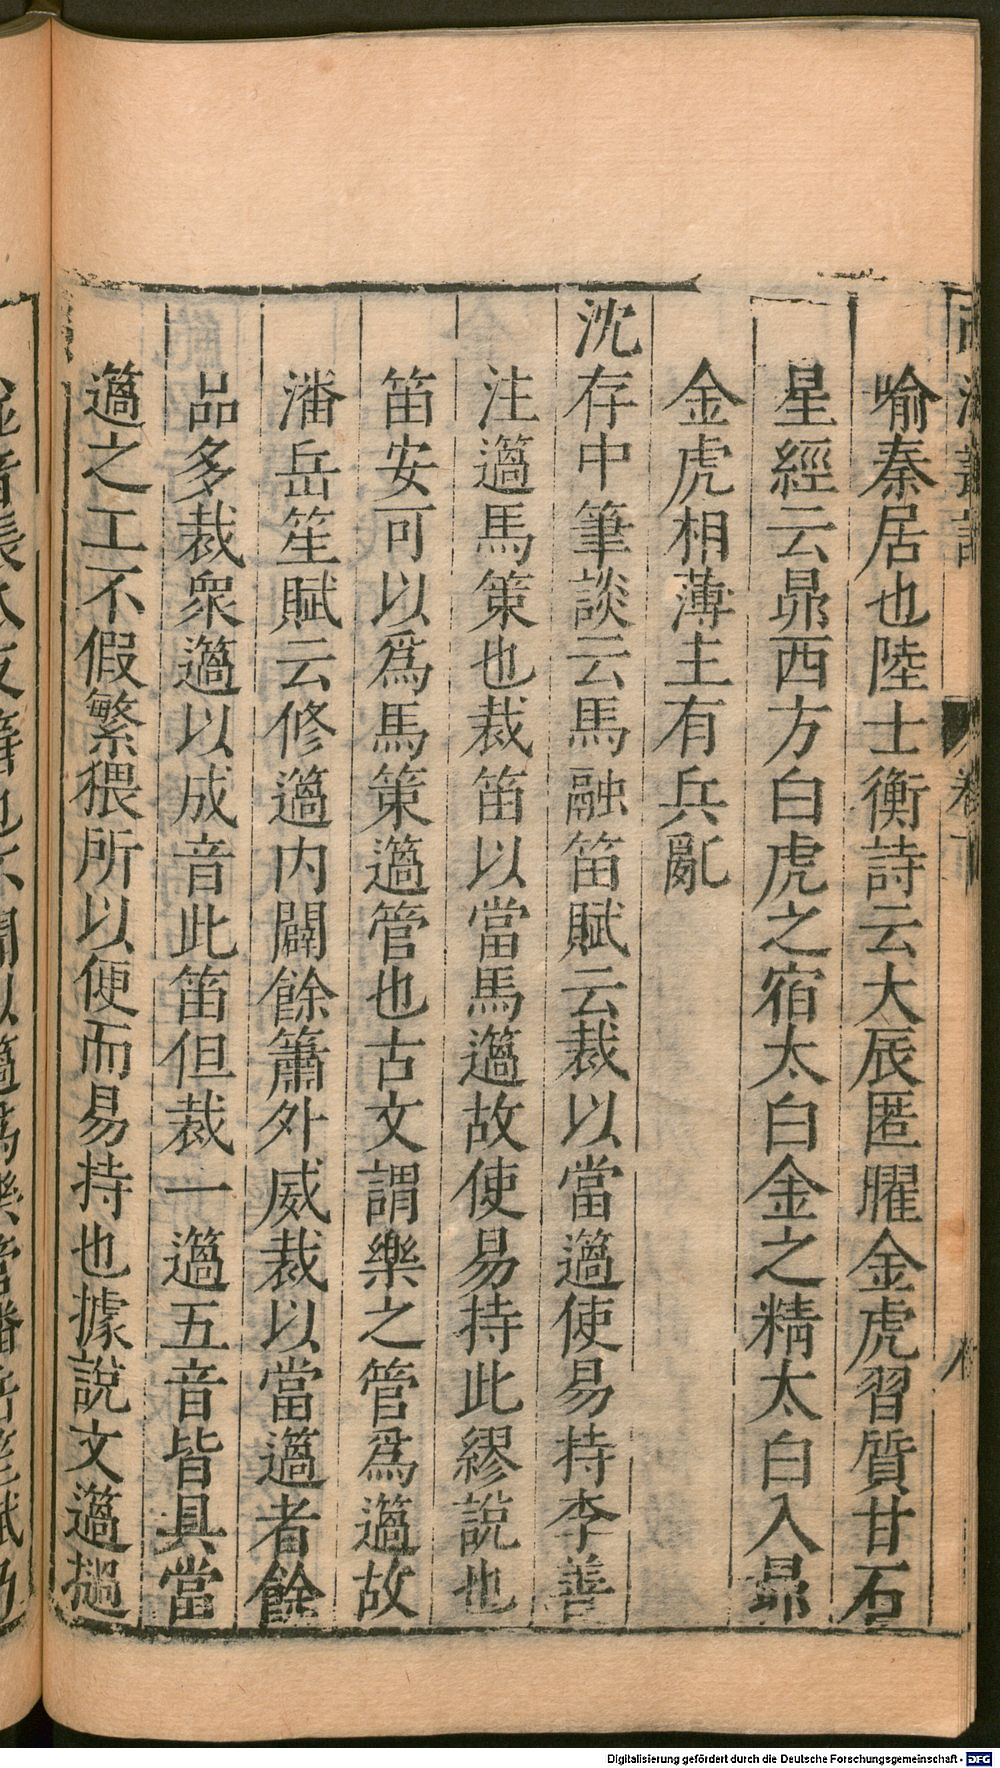 喻秦居也陸士衡詩云大辰匿曜金虎習質甘石
星經云昴西方白虎之宿太白金之精太白入昴
金虎相薄主有兵亂
沈存中筆談云馬融笛賦云裁以當簻使易持李善
注簻馬策也裁笛以當馬簻故使易持此繆說也
笛安可以爲馬策簻管也古文謂樂之管爲簻故
潘岳笙賦云修簻内闢餘簫外威裁以當簻者餘
品多裁衆簻以成音此笛但裁一簻五音皆具當
簻之工不假繁猥所以便而易持也據說文簻檛
Digitalisierung gefördert durch die Deutsche Forschungsgemeinschaft - DFG